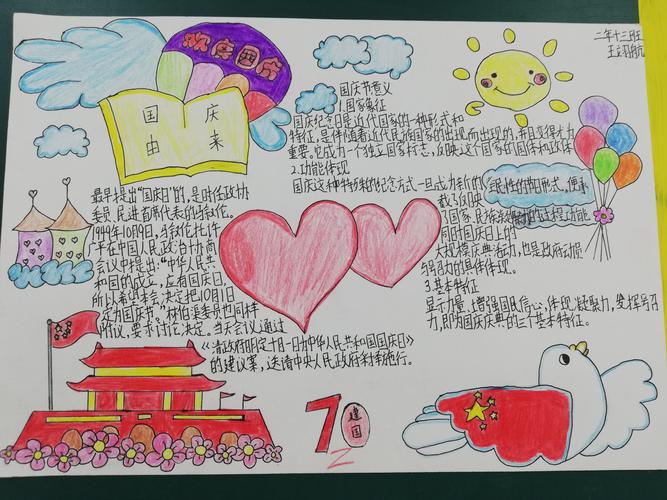 二年十三班
王翊航
欢度国庆
国庆
由来
最早提出“国庆日”的,是时任政协
委员、民进首席代表的马叙伦。
1949年10月9日,马叙伦托许
广平在中国人民政治协商
会议中提出:“中华人民共
和国的成立,应有国庆日,
所以希望本会决定把10月1日
定为国庆节。”林伯渠委员也同样
附议,要求讨论决定。当天会议通过
《请政府明定十月一日为中华人民共和国国庆日》
的建议案,送请中央人民政府采择施行。
国庆节意义
1.国家象征
国庆纪念日是近代国家的一种形式和
特征,是伴随着近代民族国家的出现而出现的,并且变得尤为
重要。它成为一个独立国家标志,反映这个国家的国体和政体
2.功能体现
国庆这种特殊的纪念方式一旦成为新的、全民性的节日形式,便承
载了反映
了国家、民族凝聚力的功能
同时国庆日上的
大规模庆典活动,也是政府动员
与号召力的具体体现。
3.基本特征
显示力量、增强国民信心,体现凝聚力,发挥号召
力,即为国庆庆典的三个基本特征。
70
建国